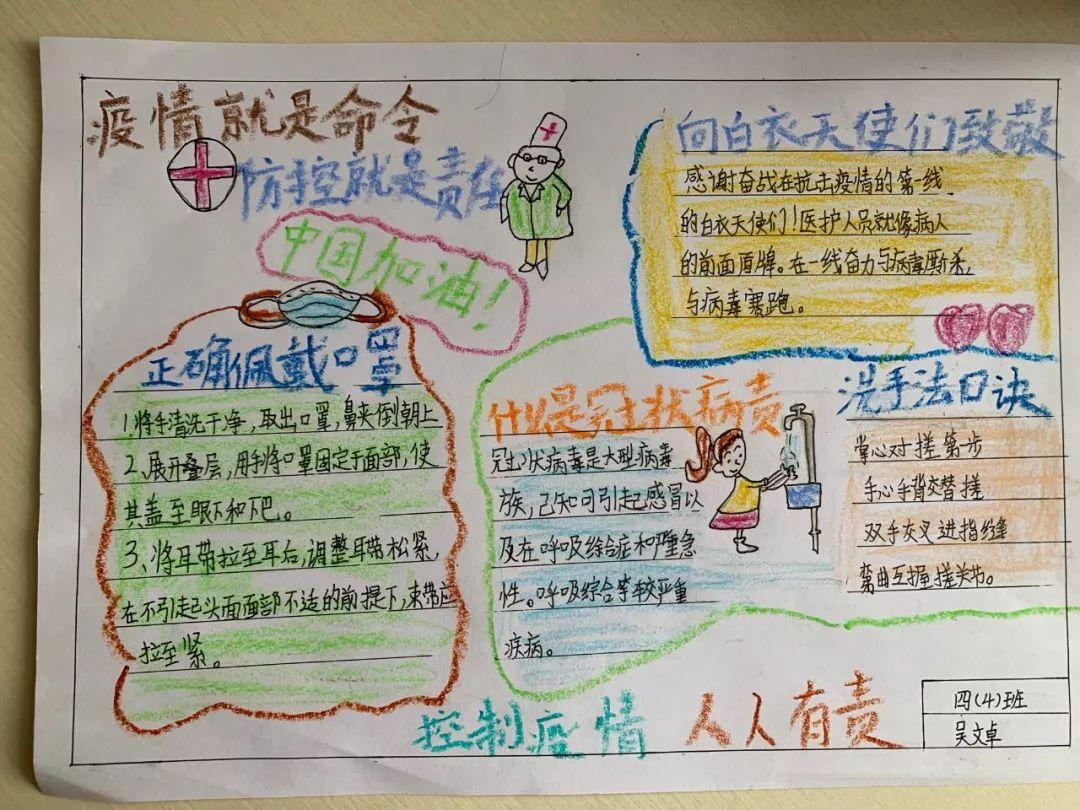 疫情就是命令
防控就是责任
中国加油！
向白衣天使们致敬
感谢奋战在抗击疫情的第一线
的白衣天使们！医护人员就像病人
的前面盾牌。在一线奋力与病毒厮杀，
与病毒赛跑。
正确佩戴口罩
1.将手清洗干净，取出口罩，鼻夹倒朝上
2、展开叠层，用手将口罩固定于面部，使
其盖至眼下和下巴。
3、将耳带拉至耳后，调整耳带松紧，
在不引起头面面部不适的前提下，束带应
拉至紧。
什么是冠状病责
冠状病毒是大型病毒
族，己知可引起感冒以
及在呼吸综合症和严重急
性。呼吸综合等较严重
疾病。
洗手法口诀
掌心对搓第步
手心手背交替搓
双手交叉进指缝
弯曲互握搓关节。
控制疫情 人人有责
四(4)班
吴文卓